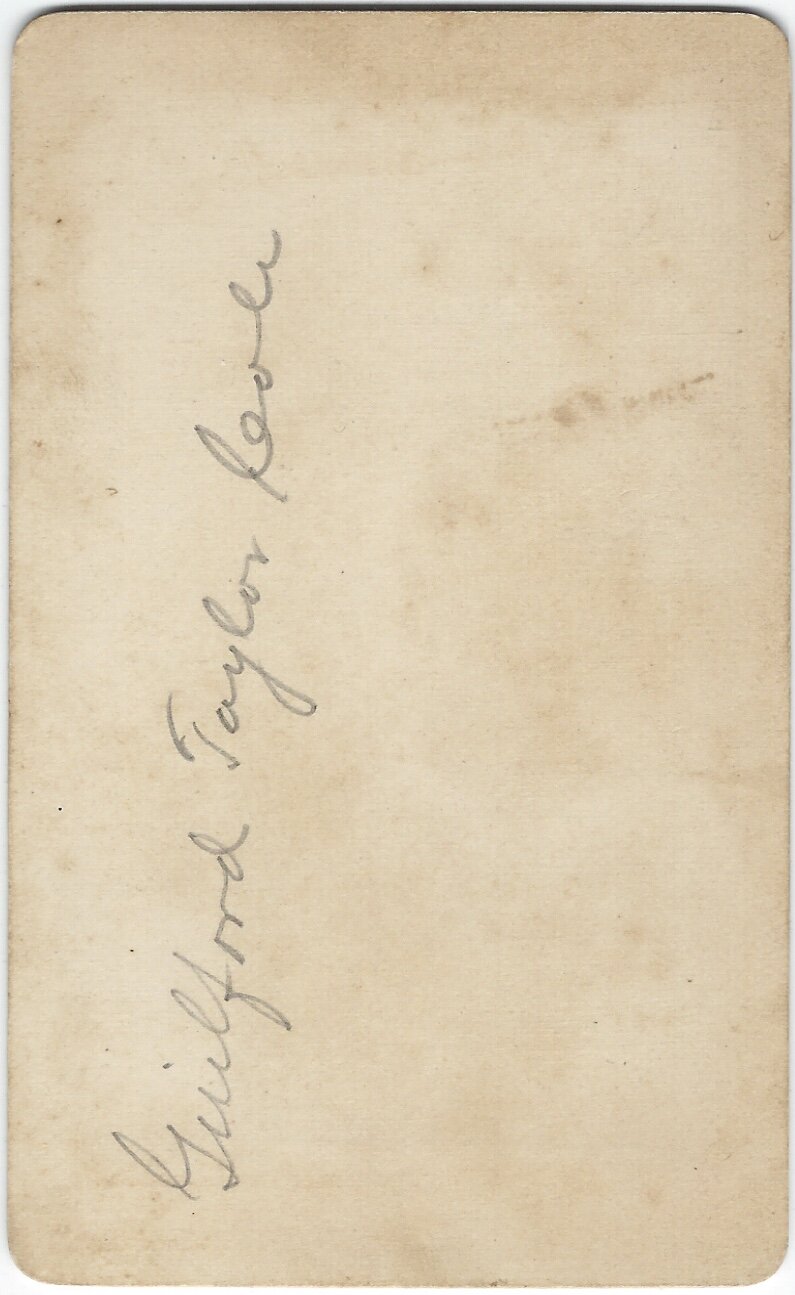 Guilford Taylor Cole